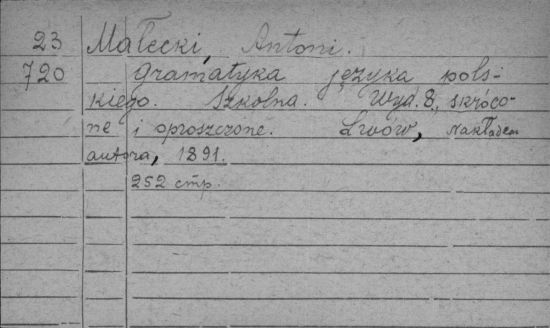 23 Małecki, Antoni.
720 Gramatyka języka pols-
kiego. Szkolna. Wyd. 8., skróco-
ne i oproszczone. Lwów, nakładem
autora, 1891.
252 стр.